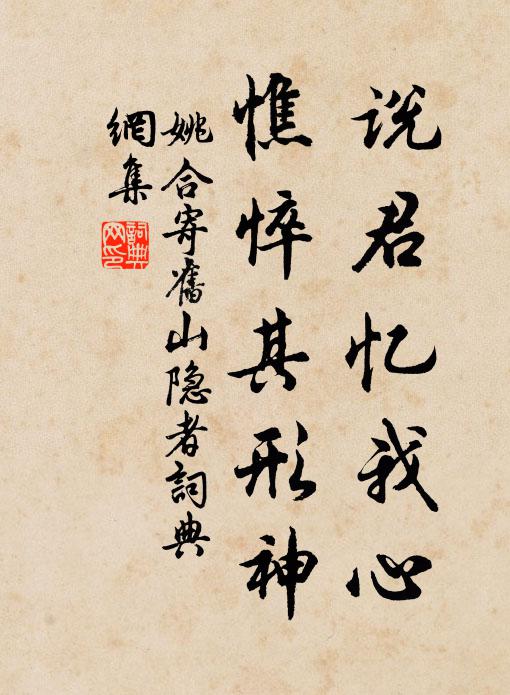 说君忆我心
憔悴其形神
姚合寄舊山隐者詞典
網集
詞典
网印